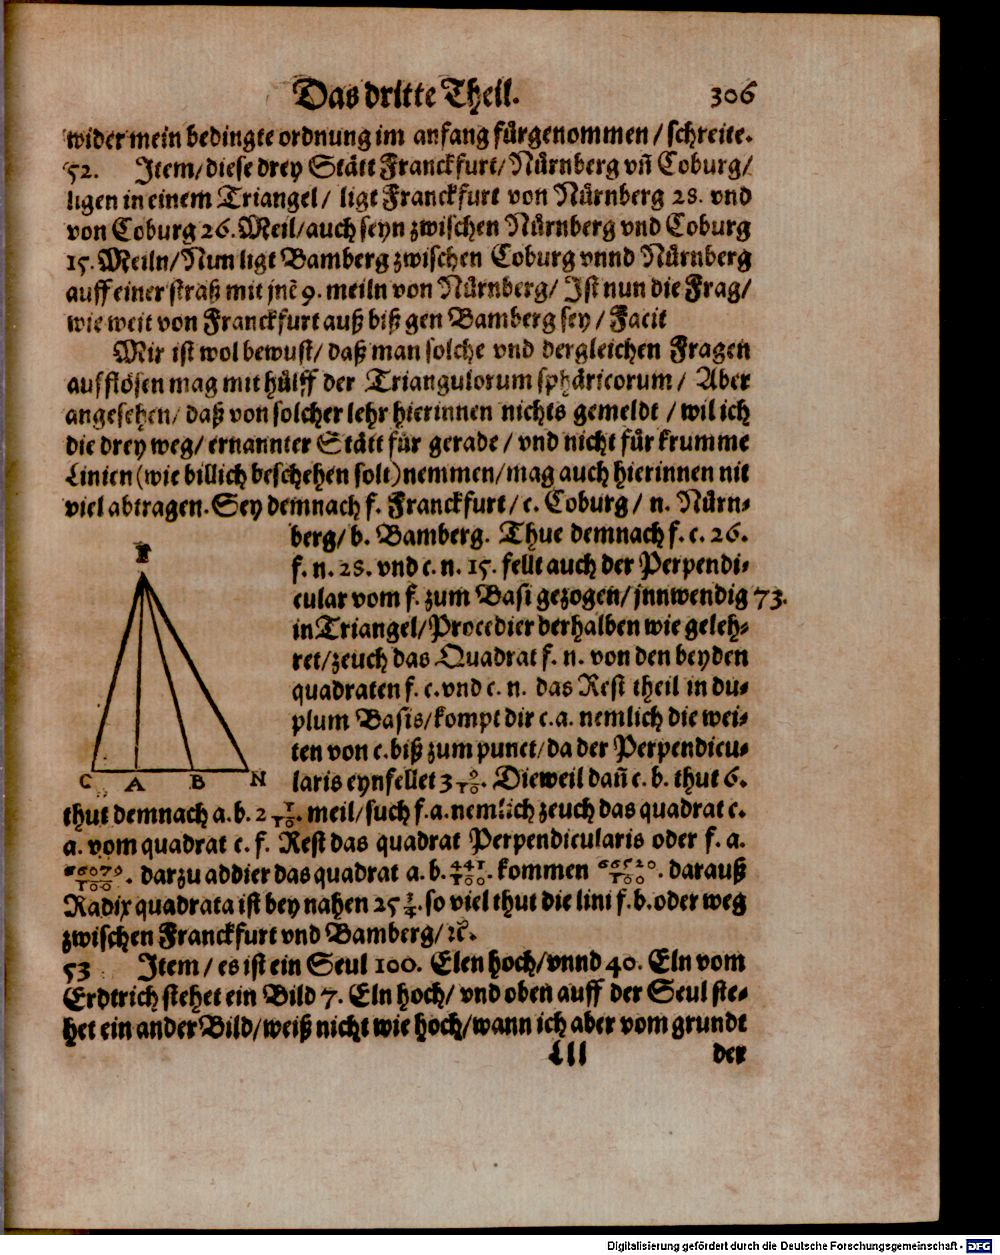 Das dritte Theil. 306
wider mein bedingte ordnung im anfang fürgenommen / schreite.
52. Item/ diese drey Stätt Franckfurt/ Nürnberg vñ Coburg/
ligen in einem Triangel/ ligt Franckfurt von Nürnberg 28. vnd
von Coburg 26. Meil/ auch seyn zwischen Nürnberg vnd Coburg
15. Meiln/ Nun ligt Bamberg zwischen Coburg vnnd Nürnberg
auff einer straß mit jnẽ 9. meiln von Nürnberg/ Ist nun die Frag/
wie weit von Franckfurt auß biß gen Bamberg sey / Facit
Mir ist wol bewust/ daß man solche vnd dergleichen Fragen
aufflösen mag mit hülff der Triangulorum sphäricorum / Aber
angesehen/ daß von solcher lehr hierinnen nichts gemeldt / wil ich
die drey weg/ ernannter Stätt für gerade / vnd nicht für krumme
Linien (wie billich beschehen solt) nemmen/ mag auch hierinnen nit
viel abtragen. Sey demnach f. Franckfurt / c. Coburg / n. Nürn-
berg/ b. Bamberg. Thue demnach f. c. 26.
f. n. 28. vnd c. n. 15. fellt auch der Perpendi-
cular vom f. zum Basi gezogen/ jnnwendig 73.
in Triangel/ Procedier derhalben wie geleh-
ret/ zeuch das Quadrat f. n. von den beyden
quadraten f. c. vnd c. n. das Rest theil in du-
plum Basis/ kompt dir c. a. nemlich die wei-
ten von c. biß zum punct/ da der Perpendicu-
laris eynfellet 3 9/10. Dieweil dañ c. b. thut 6.
F
C A B N
thut demnach a. b. 2 1/10. meil/ such f. a. nemlich zeuch das quadrat c.
a. vom quadrat c. f. Rest das quadrat Perpendicularis oder f. a.
66079/100. darzu addier das quadrat a. b. 441/100. kommen 66520/100. darauß
Radix quadrata ist bey nahen 25 3/4. so viel thut die lini f. b. oder weg
zwischen Franckfurt vnd Bamberg/ ꝛc.
53 Item / es ist ein Seul 100. Elen hoch/ vnnd 40. Eln vom
Erdtrich stehet ein Bild 7. Eln hoch/ vnd oben auff der Seul ste-
het ein ander Bild/ weiß nicht wie hoch/ wann ich aber vom grundt
Lll der
Digitalisierung gefördert durch die Deutsche Forschungsgemeinschaft - DFG